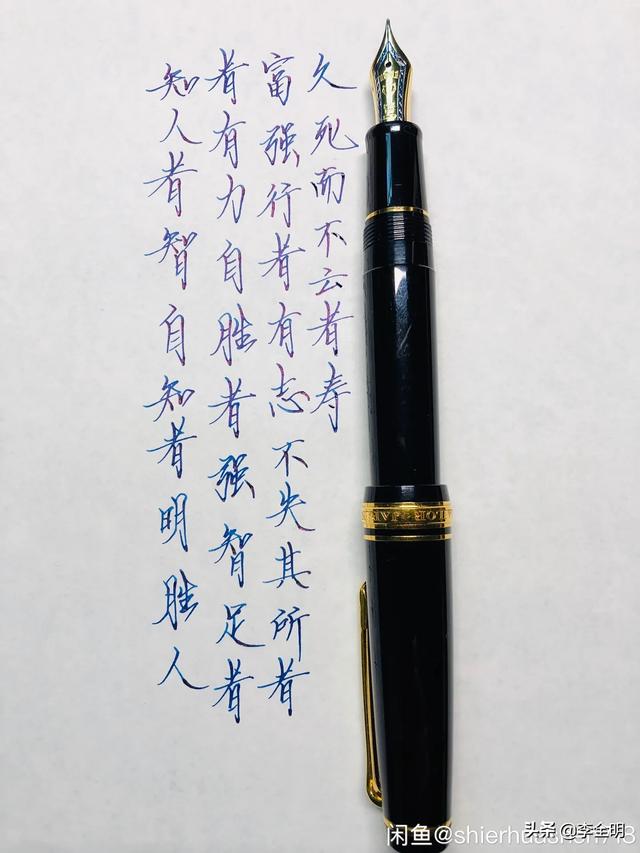 知人者智自知者明胜人
者有力自胜者强智足者
富强行者有志不失其所者
久死而不云者寿
闲鱼
头条 @李全明